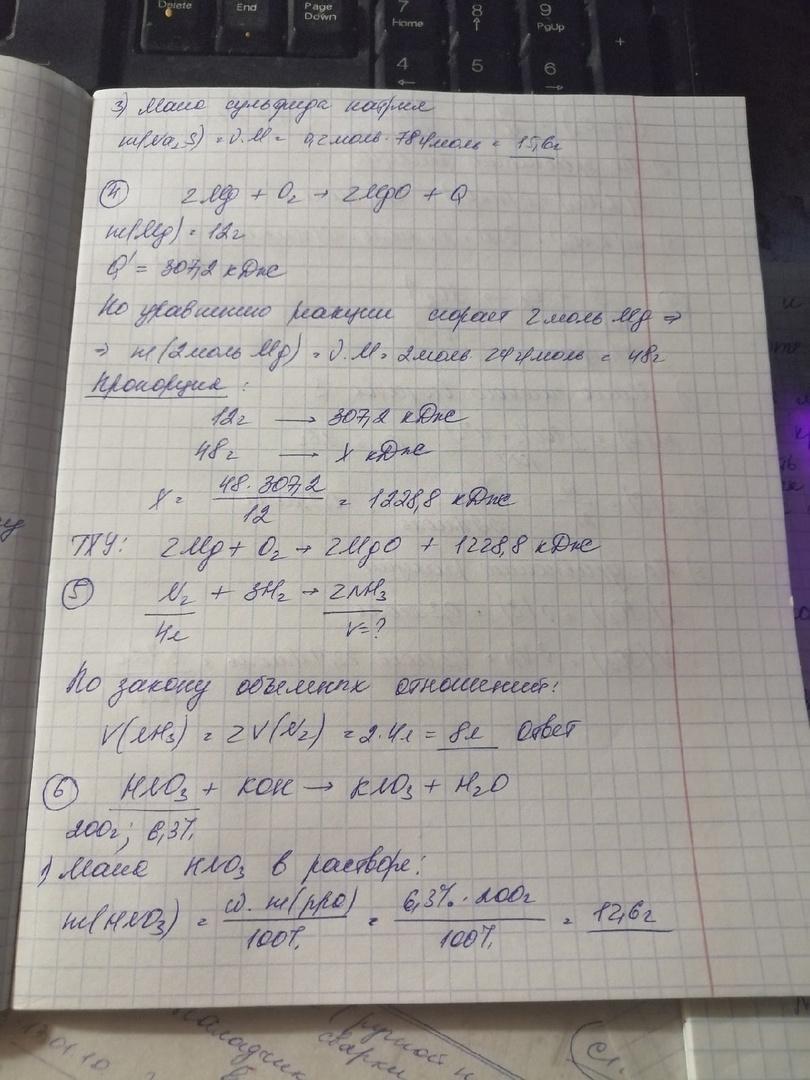 Delete
End
Page Down
7 Home
8
9 PgUp
+
4
5
6
3) Масса сульфида натрия
m(Na₂S) = ν·M = 0,2моль·78г/моль = 15,6г
④ 2Mg + O₂ → 2MgO + Q
m(Mg) = 12г
Q' = 307,2 кДж
По уравнению реакции сгорает 2моль Mg ⇒
⇒ m(2моль Mg) = ν·M = 2моль·24г/моль = 48г
Пропорция:
12г → 307,2 кДж
48г → X кДж
X = 48·307,2 / 12 = 1228,8 кДж
ТХУ: 2Mg + O₂ → 2MgO + 1228,8 кДж
⑤ N₂ + 3H₂ → 2NH₃
4л V=?
По закону объемных отношений:
V(NH₃) = 2V(N₂) = 2·4л = 8л Ответ
⑥ HNO₃ + KOH → KNO₃ + H₂O
200г; 6,3%
1) Масса HNO₃ в растворе:
m(HNO₃) = ω·m(рра) / 100% = 6,3%·200г / 100% = 12,6г
наладчик
ручной
сварки